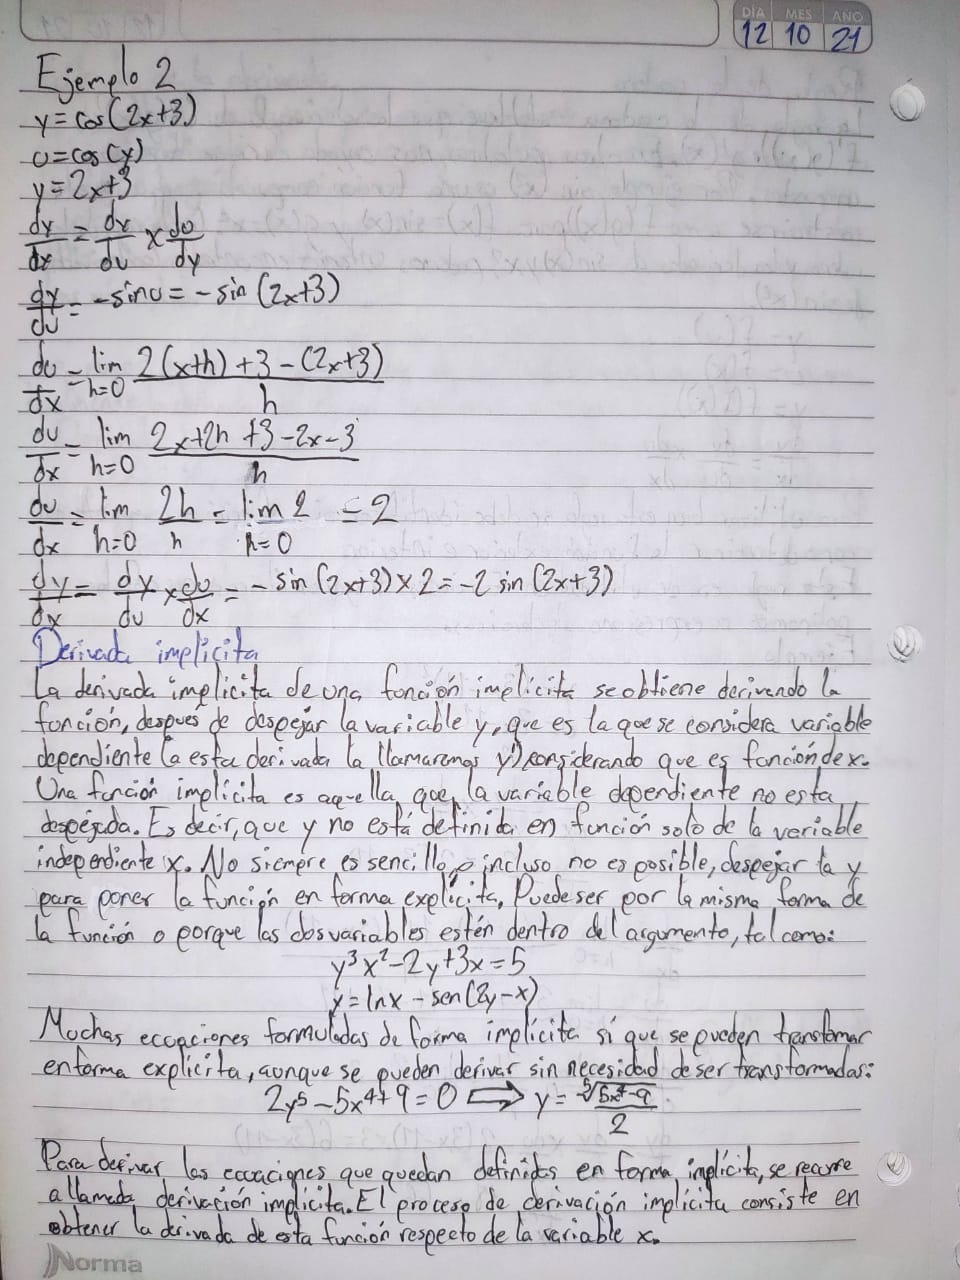 DIA MES AÑO
12 10 21
Ejemplo 2
y=cos(2x+3)
u=cos(y)
y=2x+3
dy/dx = dy/du x du/dy
dy/du = -sinu = -sin(2x+3)
du/dx = lim h=0 2(x+h)+3-(2x+3)/h
du/dx = lim h=0 2x+2h+3-2x-3/h
du/dx = lim h=0 2h/h = lim h=0 2 = 2
dy/dx = dy/du x du/dx = -sin(2x+3)x2=-2 sin(2x+3)
Derivada implicita
La derivada implicita de una función implícita se obtiene derivando la
función, después de despejar la variable y, que es la que se considera variable
dependiente (a esta derivada la llamaremos y') considerando que es función de x.
Una función implícita es aquella que la variable dependiente no esta
despejada. Es decir, que y no está definida en función solo de la variable
independiente x. No siempre es sencillo, o incluso no es posible, despejar la y
para poner la función en forma explícita, Puede ser por la misma forma de
la función o porque las dos variables estén dentro del argumento, tal como:
y³x²-2y+3x=5
y=lnx-sen(2y-x)
Muchas ecuaciones formuladas de forma implícita sí que se pueden transfomar
en forma explicita, aunque se pueden derivar sin necesidad de ser transformadas:
2y⁵-5x⁴+9=0 ⇒ y=⁵√5x⁴-9/2
Para derivar las ecuaciones que quedan definidas en forma implícita, se recurre
a llamada derivación implícita. El proceso de derivación implícita consiste en
obtener la derivada de esta función respecto de la variable x.
Norma